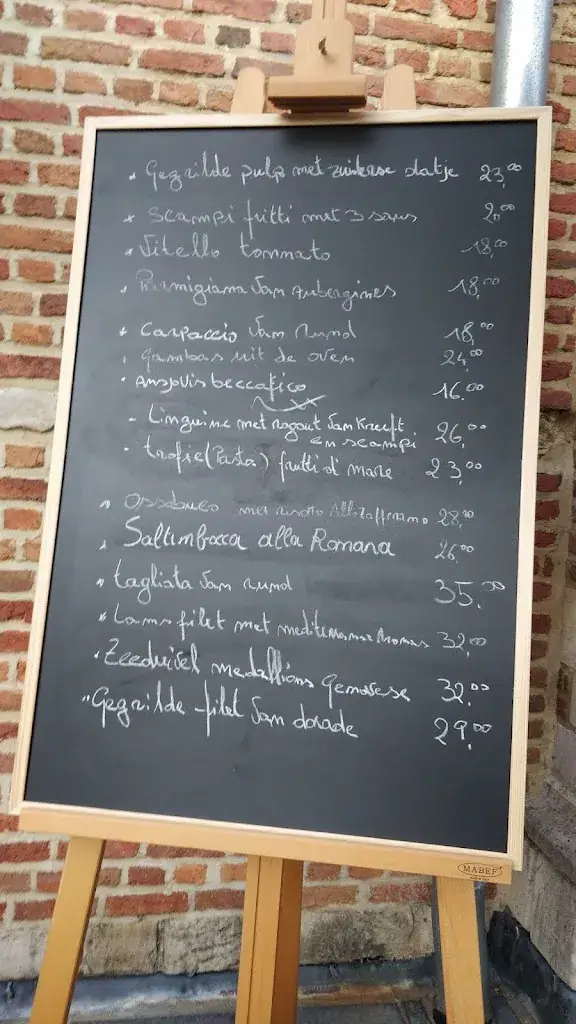 Gegrilde pulp met zuiderse slatje 23,00
Scampi fritti met 3 saus 20,00
Vitello tonnato 18,00
Parmigiana van Aubergines 18,00
Carpaccio van Rund 18,00
Gambas uit de oven 24,00
Ansjovis beccafico 16,00
Linguine met ragout van Kreeft 26,00
en scampi
trofie (Pasta) frutti di mare 23,00
Ossobuco met risotto Allo Zafferano 28,00
Saltimbocca alla Romana 26,00
tagliata van rund 35,00
Lams filet met 32,00
Zeeduivel medallions Genovese 32,00
Gegrilde filet van dorade 29,00
MABEF